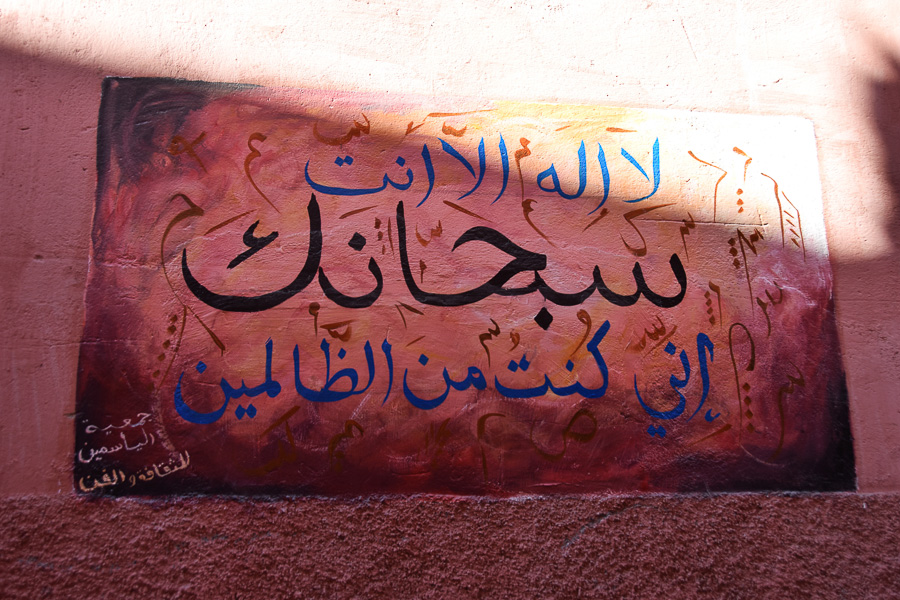 لا اله الا انت
سبحانك
إني كنتُ من الظالمين
جمعية
الياسمين
للثقافة والفن